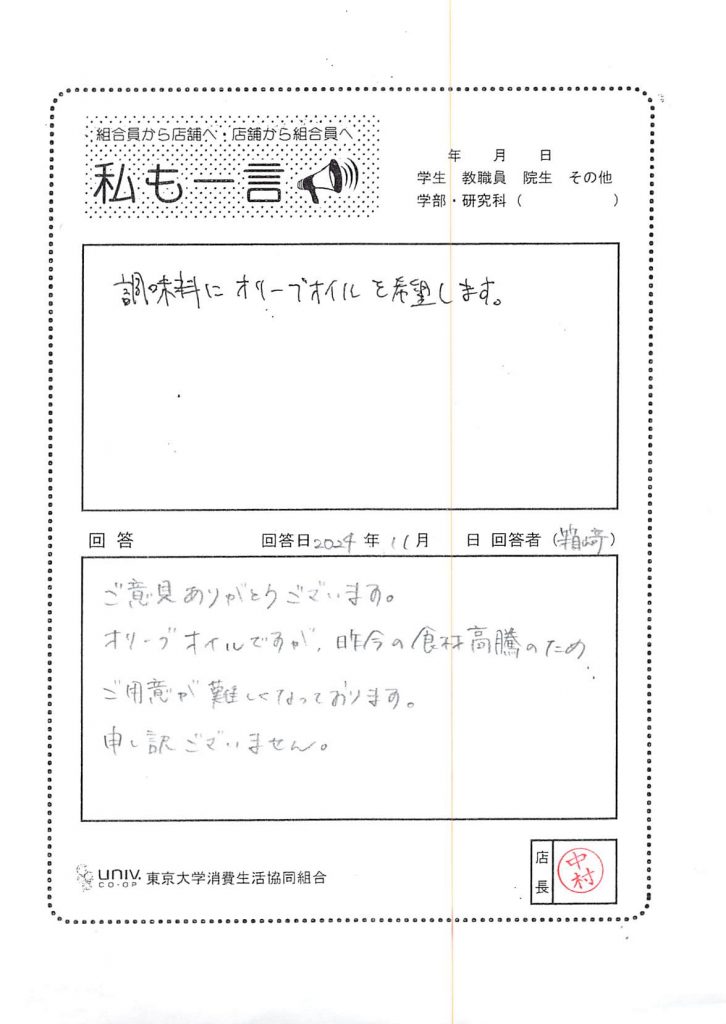 組合員から店舗へ・店舗から組合員へ
私も一言
年 月 日
学生 教職員 院生 その他
学部・研究科 ( )
調味料にオリーブオイルを希望します。
回答 回答日 2024 年 11 月 日 回答者 (箱﨑)
ご意見ありがとうございます。
オリーブオイルですが、昨今の食材高騰のため
ご用意が難しくなっております。
申し訳ございません。
UNIV. CO-OP 東京大学消費生活協同組合
店長 中村